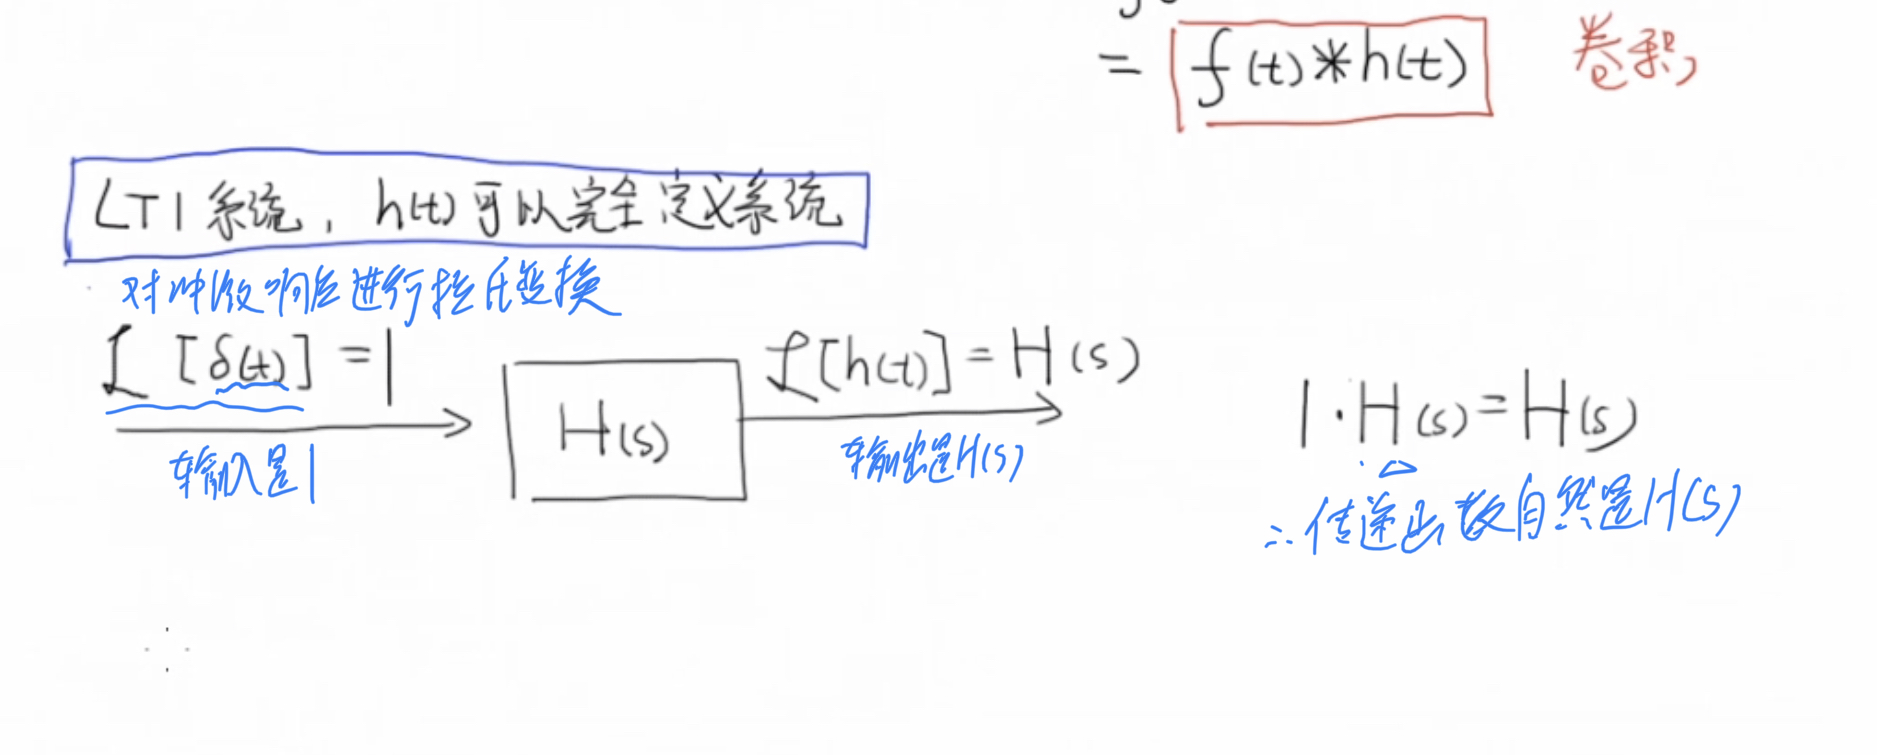 = f(t)*h(t) 卷积
LTI系统，h(t)可以完全定义系统
对冲激响应进行拉氏变换
ℒ[δ(t)] = 1
ℒ[h(t)] = H(s)
H(s)
1·H(s) = H(s)
输入是1
输出是H(s)
∴传递函数自然是H(s)